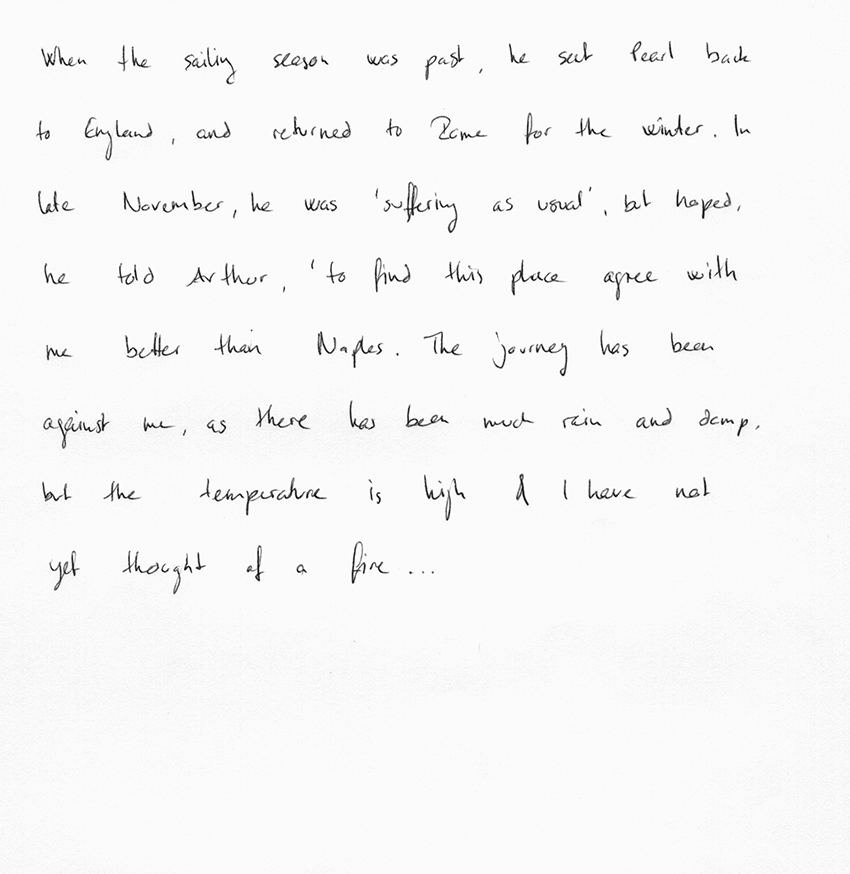 When the sailing season was past, he sent Pearl back
to England, and returned to Rome for the winter. In
late November, he was 'suffering as usual', but hoped,
he told Arthur, 'to find this place agree with
me better than Naples. The journey has been
against me, as there has been much rain and damp,
but the temperature is high & I have not
yet thought of a fire...